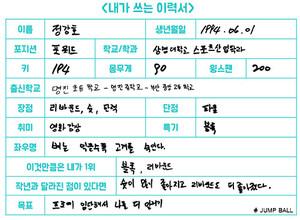 <내가 쓰는 이력서>
이름 정강호 생년월일 1994.06.01
포지션 포워드 학교/학과 상명대학교 스포츠산업학과
키 194 몸무게 90 윙스팬 200
출신학교 명진초등학교 - 명진중학교 -
장점 리바운드, 슛, 탄력 단점 파울
취미 영화감상 특기 블록
좌우명 벼는 익을수록 고개를 숙인다.
이것만큼은 내가 1위 블록, 리바운드
작년과 달라진 점이 있다면 슛이 많이 좋아지고 리바운드도 더 좋아졌다.
목표 프로에 입단해서 나를 더 알리기
# JUMP BALL